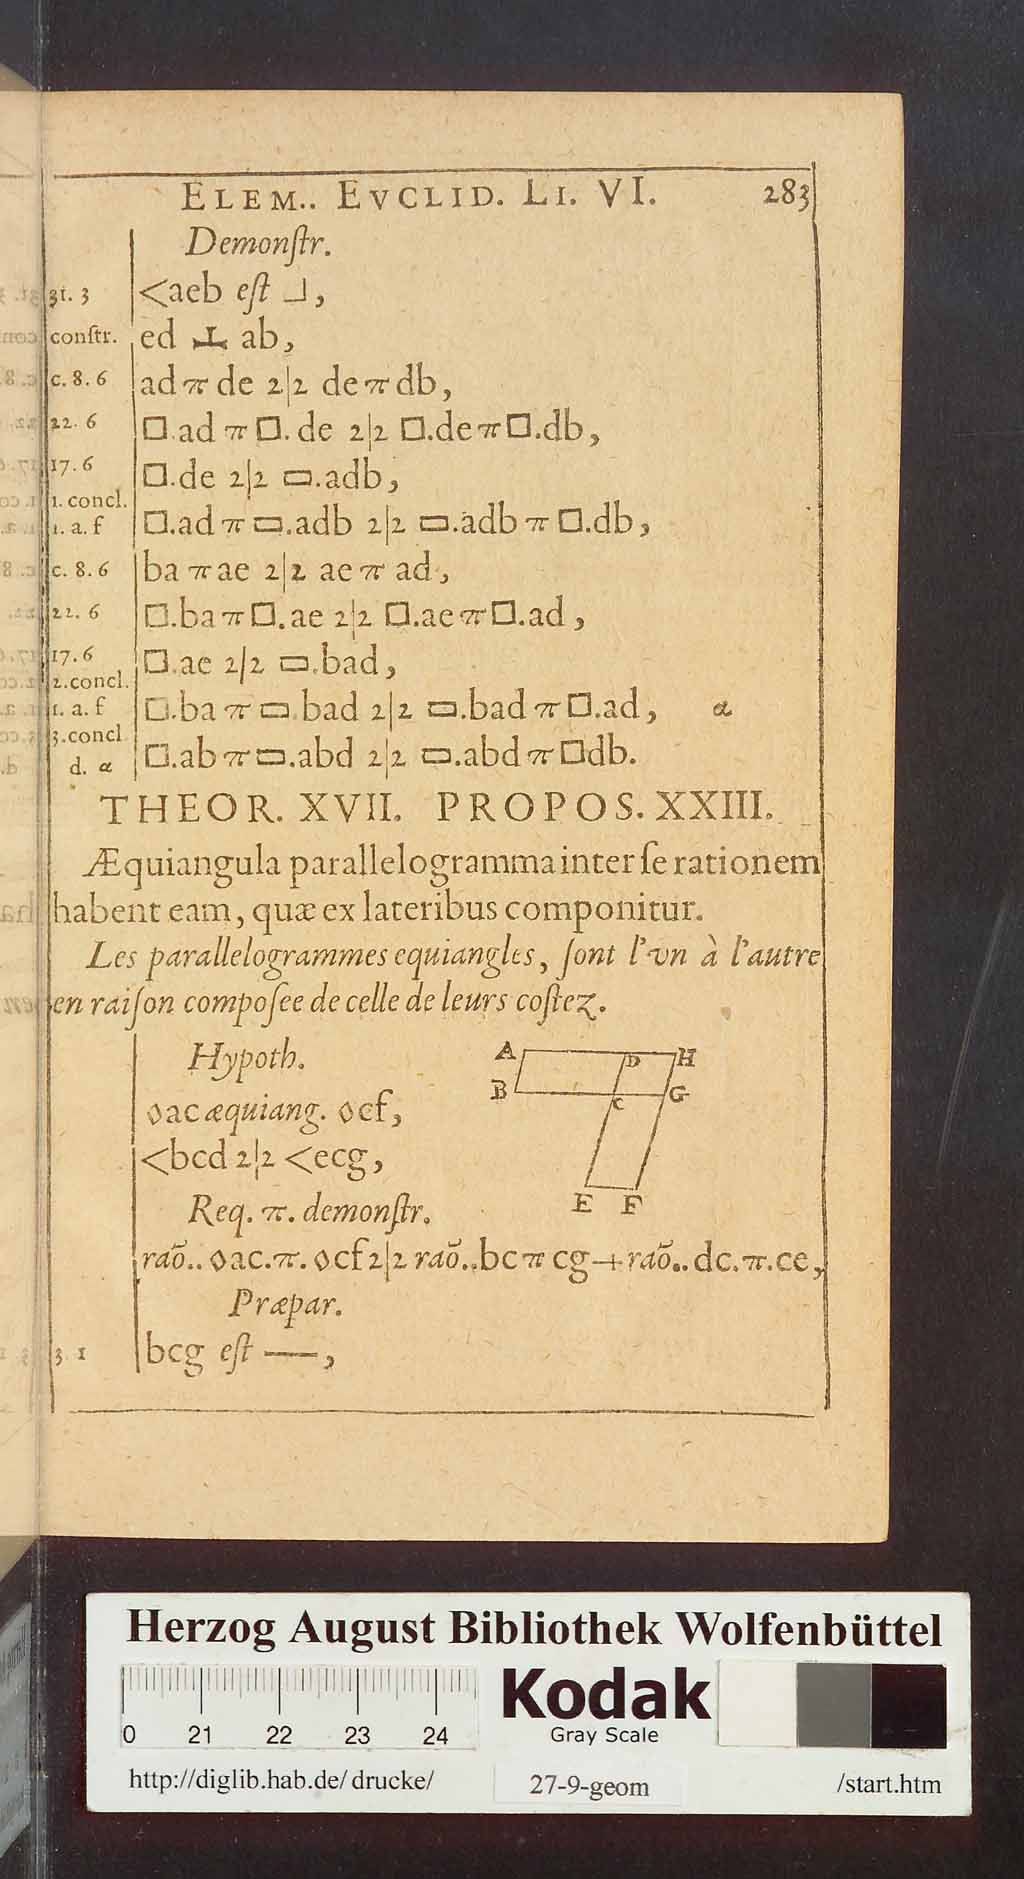 ELEM.. EVCLID. LI. VI. 283
Demonſtr.
31. 3 <aeb eſt ⅃,
conſtr. ed ⊥ ab,
c. 8. 6 ad π de 2|2 de π db,
22. 6 □.ad π □. de 2|2 □.de π □.db,
17. 6 □.de 2|2 ▭.adb,
1. concl.
1. a. f □.ad π ▭.adb 2|2 ▭.adb π □.db,
c. 8. 6 ba π ae 2|2 ae π ad,
22. 6 □.ba π □. ae 2|2 □.ae π □.ad,
17. 6 □.ae 2|2 ▭.bad,
2.concl.
1. a. f □.ba π ▭.bad 2|2 ▭.bad π □.ad, α
3.concl
d. α □.ab π ▭.abd 2|2 ▭.abd π □db.
THEOR. XVII. PROPOS. XXIII.
Æquiangula parallelogramma inter ſe rationem
habent eam, quæ ex lateribus componitur.
Les parallelogrammes equiangles, ſont l'vn à l'autre
en raiſon compoſee de celle de leurs coſtez.
Hypoth.
◊ac æquiang. ◊cf,
<bcd 2|2 <ecg,
Req. π. demonſtr.
raõ.. ◊ac.π. ◊cf 2|2 raõ..bc π cg+raõ.. dc.π.ce,
Præpar.
3 1 bcg eſt —,
A D H
B C G
E F
Herzog August Bibliothek Wolfenbüttel
0 21 22 23 24
Kodak
Gray Scale
http://diglib.hab.de/drucke/ 27-9-geom /start.htm